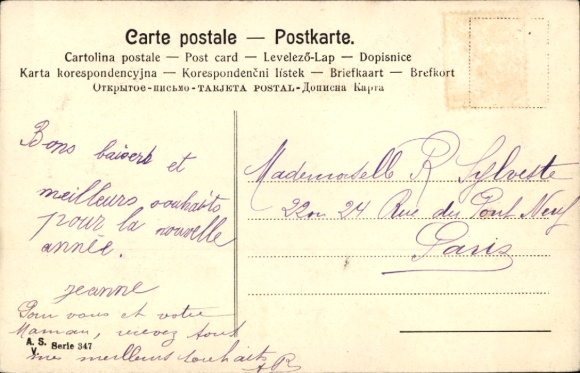 Carte postale — Postkarte.
Cartolina postale — Post card — Levelező-Lap — Dopisnice
Karta korespondencyjna — Korespondenční lístek — Briefkaart — Brefkort
Открытое-письмо-TARJETA POSTAL-Дописна Карта
Bons baisers et
meilleurs souhaits
pour la nouvelle
année.
Jeanne
Pour vous et votre
Maman, recevez tous
mes meilleurs souhaits
A. S.
V.
Serie 347
Mademoiselle R Sylveste
22 ou 24 Rue du Pont Neuf
Paris